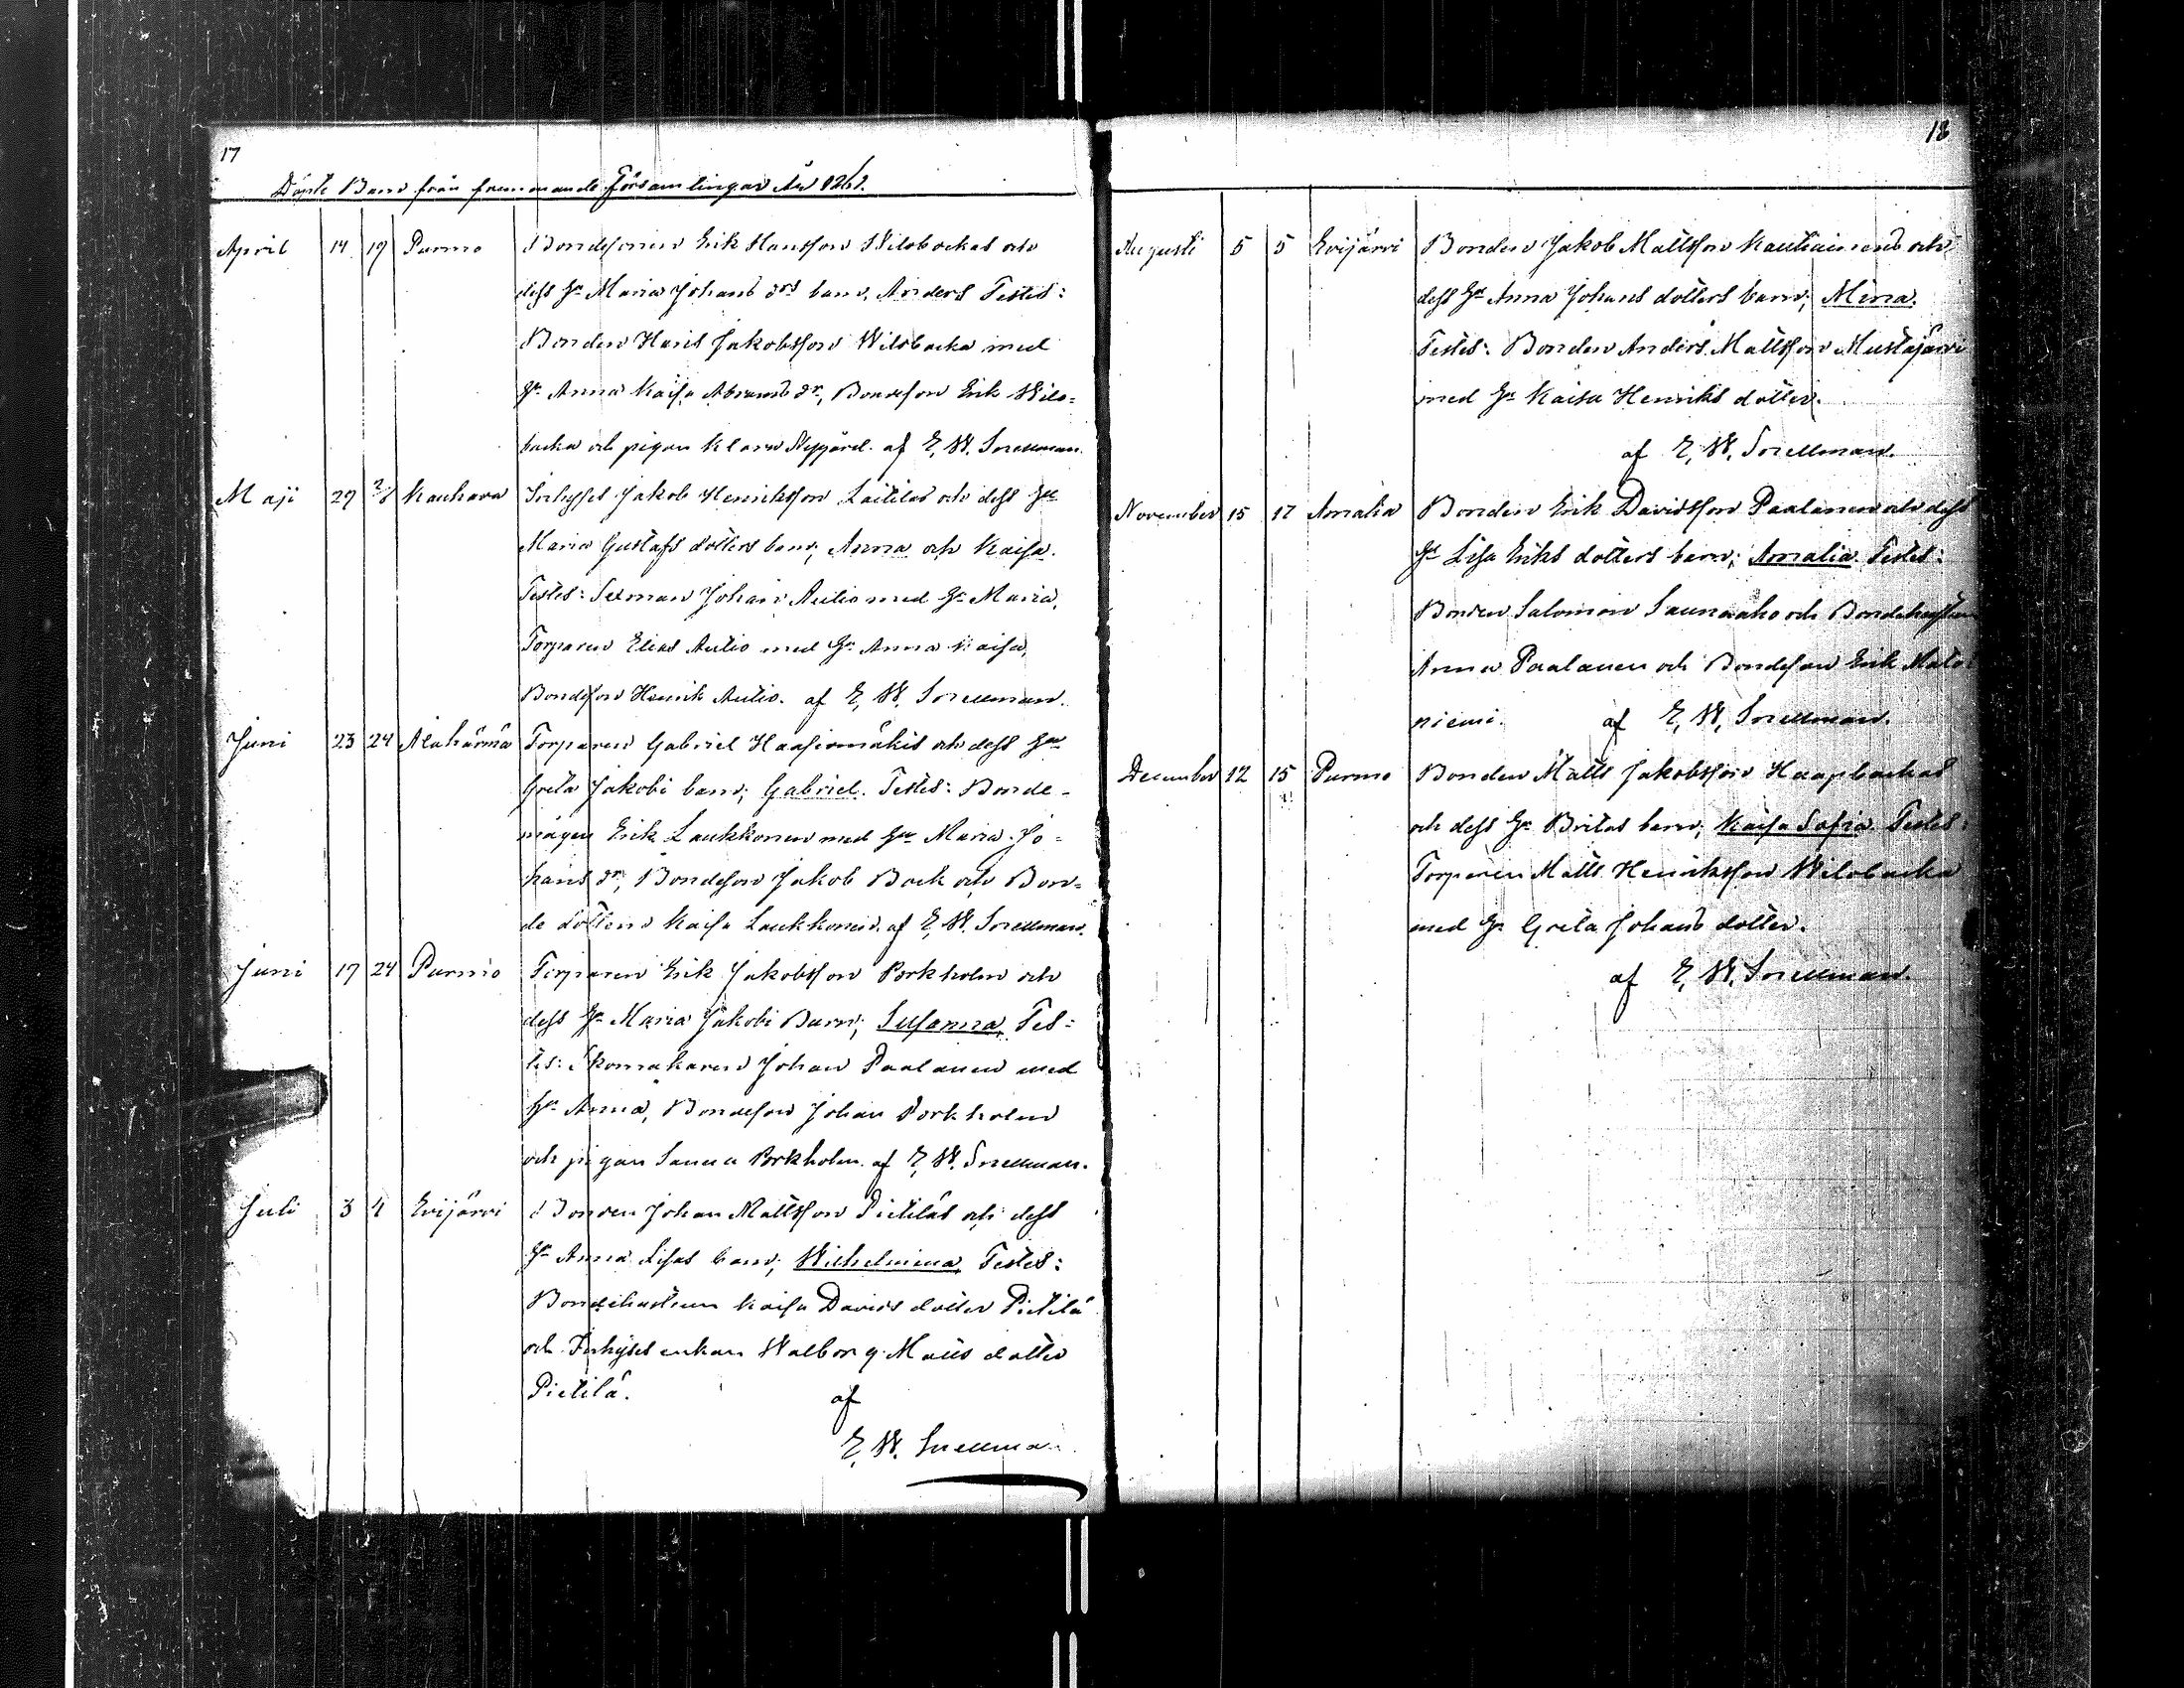 17
Döpte Barn från fremmande Församlingar År 1861.
April 14 19 Purmo Bondesonen Erik Hansson Wilobackas och
dess Hu Maria Johans drs barn, Anders Testes:
Bonden Hans Jakobsson Wilobacka med
Hu Anna Kaisa Abrams dr, Bondeson Erik Wilo=
backa och pigan Klara af E. W. Snellman.
Maji 27 2/6 Kauhava Inhyses Jakob Henriksson Laitilas och dess Hu
Maria Gustafs dotters barn; Anna och Kaisa.
Testes: Sexman Johan Autio med Hu Maria,
Torparen Elias Autio med Hu Anna Kaisa,
Bondeson Henrik Autio. af E. W. Snellman.
Juni 23 24 Alahärmä Torparen Gabriel Haasiomäkis och dess Hu
Greta Jakobi barn; Gabriel. Testes: Bonde-
mågen Erik Laukkonen med Hu Maria Jo=
hans dr, Bondeson Jakob Back och Bon=
de dottern Kaisa Laukkonen. af E. W. Snellman.
Juni 17 24 Purmo Torparen Erik Jakobsson Porkholm och
dess Hu Maria Jakobi Barn; Susanna, Tes=
tes: Skomakaren Johan Paalanen med
Hu Anna, Bondeson Johan Porkholm
och pigan Sanna Porkholm. af E. W. Snellman.
Juli 3 4 Evijärvi Bonden Johan Mattsson Pietiläs och dess
Hu Anna Lisas barn; Wilhelmina, Testes:
Bondehustrun Kaisa Davids dotter Pietilä
och Inhyses enkan Walborg Matts dotter
Pietilä. af
E. W. Snellman
18
Augusti 5 5 Evijärvi Bonden Jakob Mattsson Kautiainens och
dess Hu Anna Johans dotters barn; Mina.
Testes: Bonden Anders Mattsson Mustajärvi
med Hu Kaisa Henriks dotter.
af E. W. Snellman.
November 15 17 Bonden Erik Davidsson Paalanen och dess
Hu Lisa Eriks dotters barn; Amalia. Testes:
Bonden Salomon Saunaaho och Bondehustrun
Anna Paalanen och Bondeson Erik Mato-
niemi. af E. W. Snellman.
December 12 15 Purmo Bonden Matts Jakobsson Haapbackas
och dess Hu Britas barn; Kaisa Sofia Testes:
Torparen Matts Henriksson Wilobacka
med Hu Greta Johans dotter.
af E. W. Snellman.